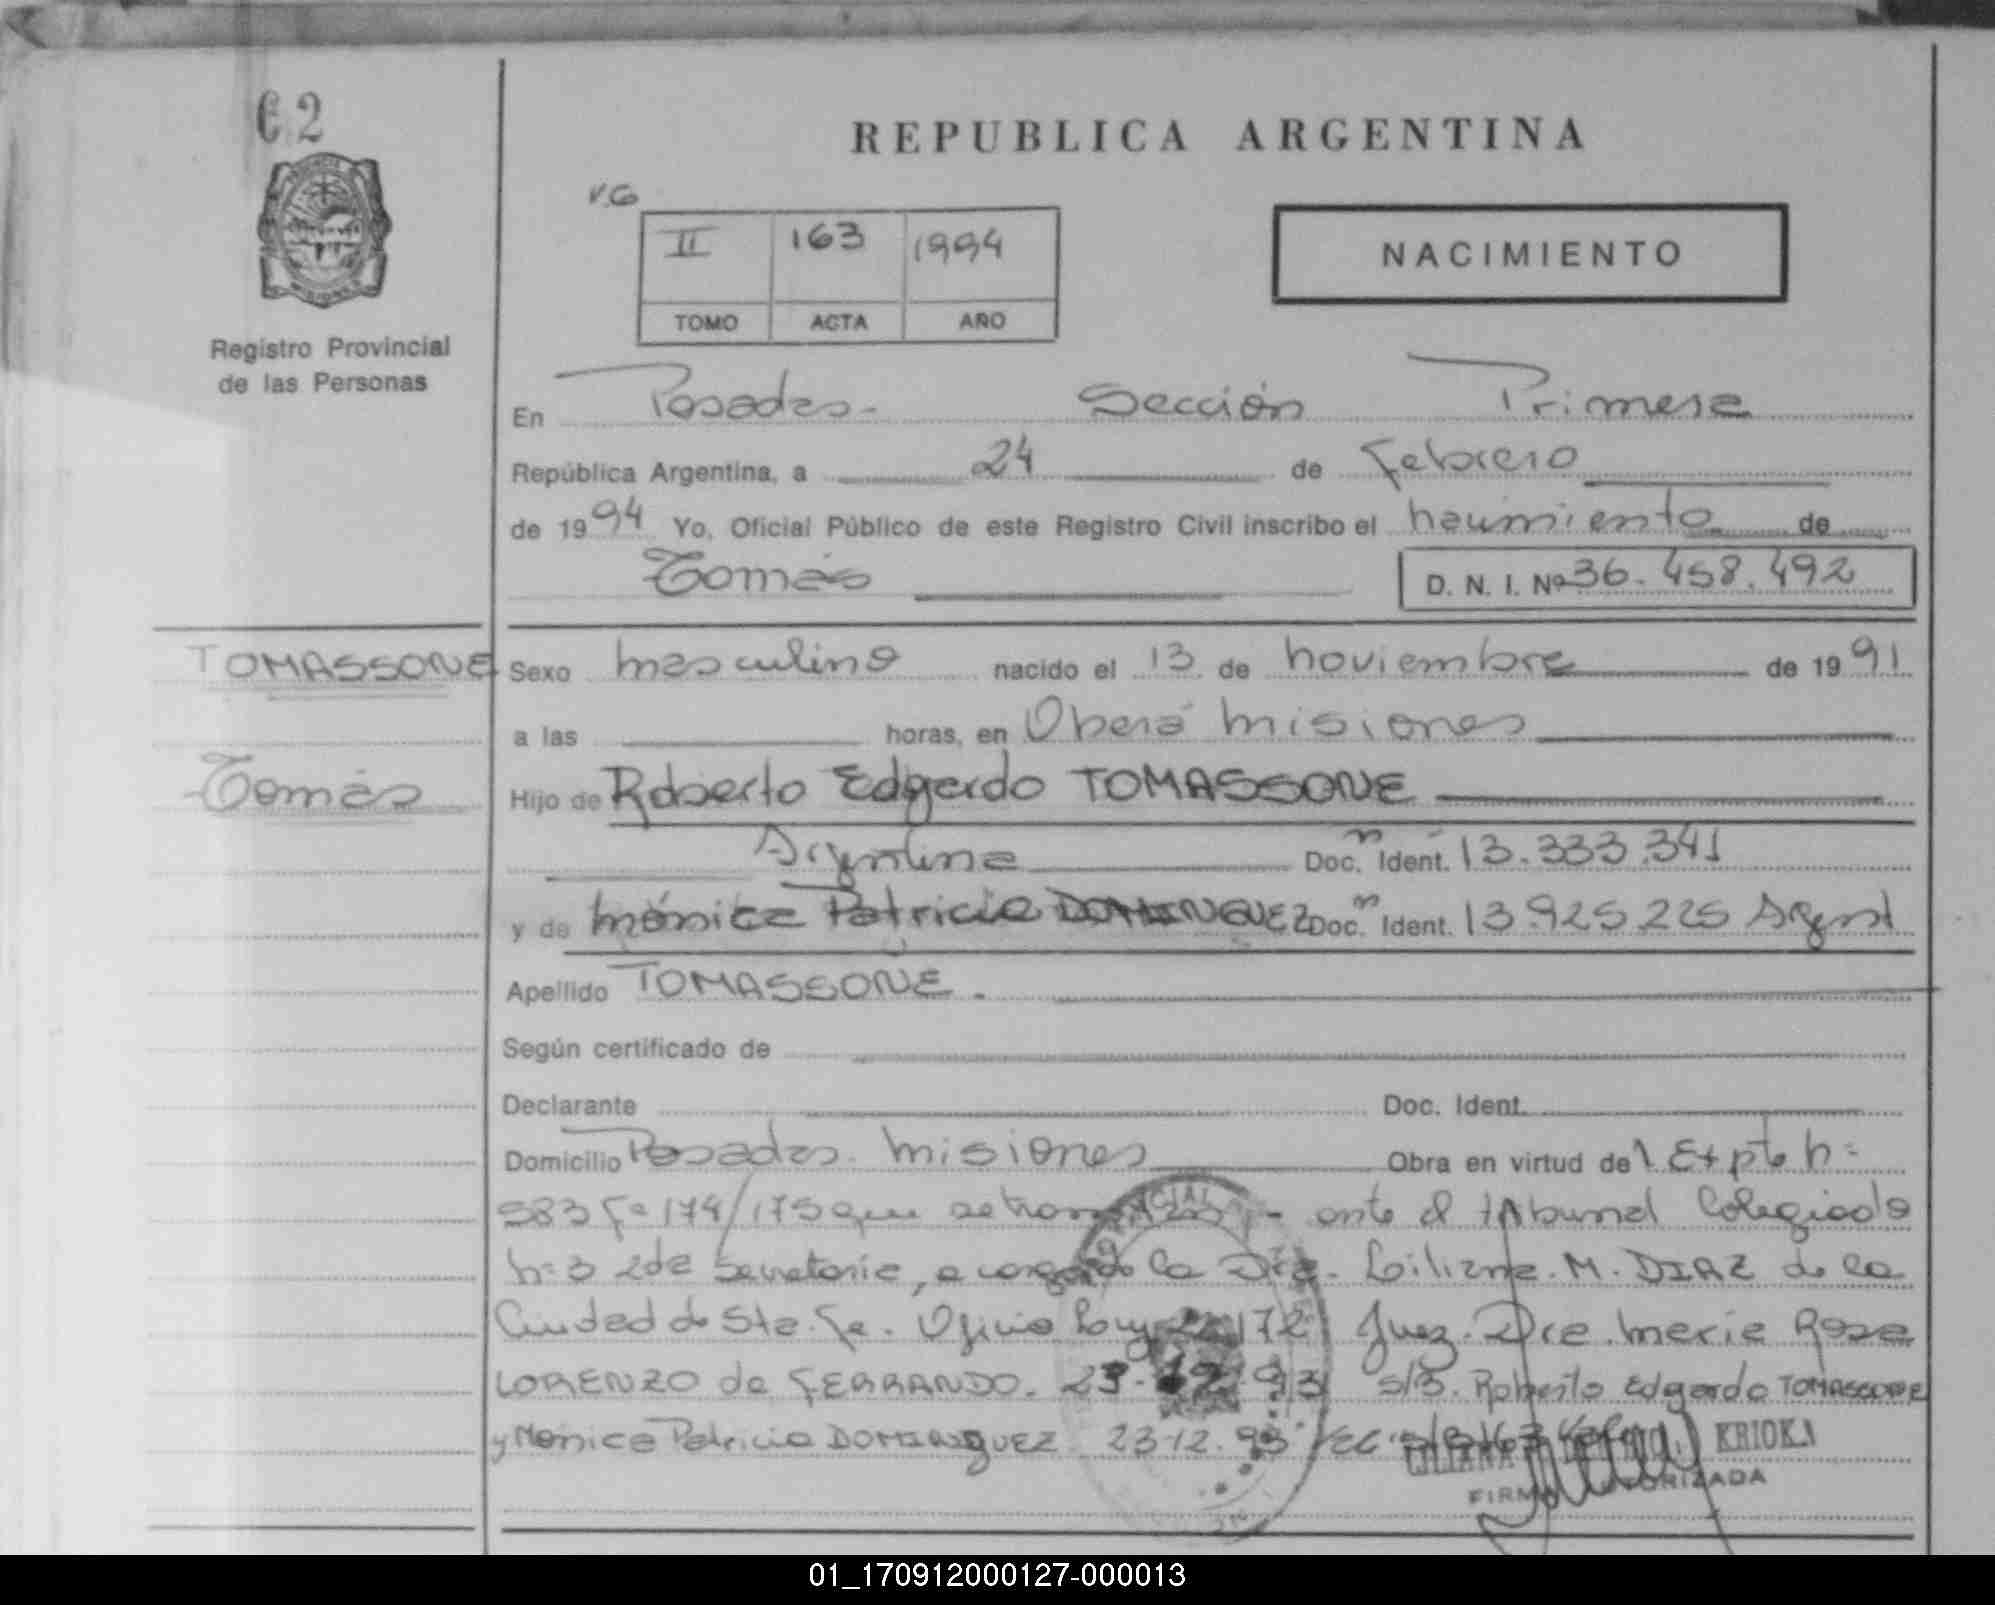 62
REPUBLICA ARGENTINA
V.G
II 163 1994
TOMO ACTA AÑO
NACIMIENTO
Registro Provincial
de las Personas
En Posadas.- Sección Primera
República Argentina, a 24 de Febrero
de 1994 Yo, Oficial Público de este Registro Civil inscribo el nacimiento de
Tomás D. N. I. Nº 36.458.492
TOMASSONE Sexo masculino nacido el 13 de noviembre de 1991
a las horas, en Oberá Misiones
Tomás Hijo de Roberto Edgardo TOMASSONE
Argentina Doc. Ident. 13.333.341
y de Mónica Patricia DOMINGUEZ Doc. Ident. 13.925.225 Argent
Apellido TOMASSONE.
Según certificado de
Declarante Doc. Ident.
Domicilio Posadas. Misiones Obra en virtud del Expte n=
583 Fº 174/175 que se ante el tribunal Colegiado
n=3 2da Secretaria, a cargo de la Dra. Liliana. M. DIAZ de la
Ciudad de Sta. Fe. Oficio Ley 22172 Juez. Dra. Maria Rosa
LORENZO de FERRANDO. 23-12-93 s/3. Roberto Edgardo TOMASSONE
y Monica Patricia DOMINGUEZ 23-12.93
LILIANA KRIOKA
FIRMA AUTORIZADA
01_170912000127-000013